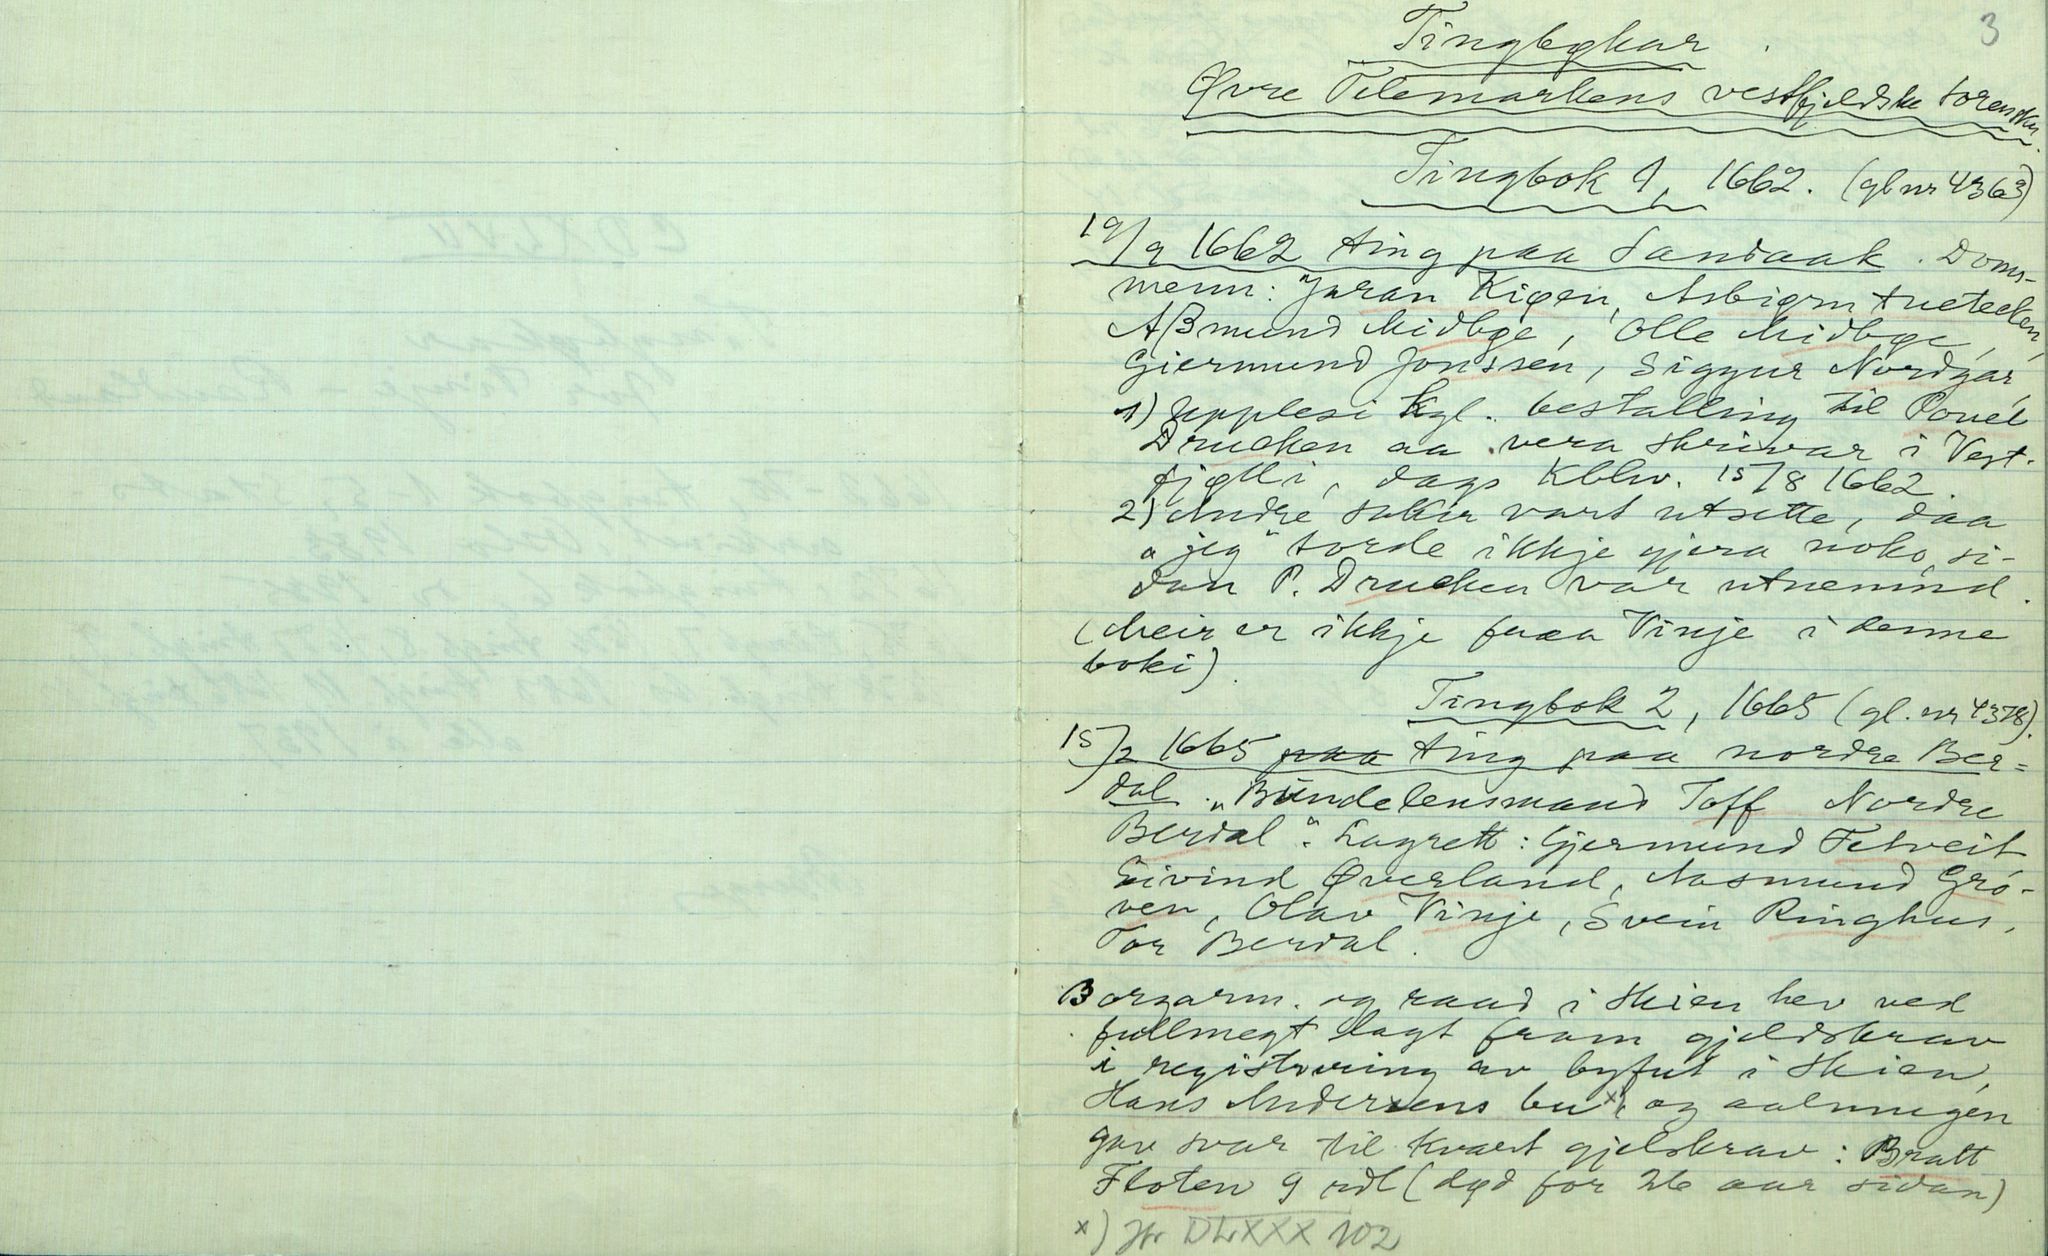 3
Tingbøkar
Øvre Telemarkens vestfjeldske sorenskr.
Tingbok 1, 1662. (gl nr 4363)
19/9 1662 ting paa Sandaak. Doms-
menn: "Jøran Kigen, Asbiørn Tueteden,
Aßmund Midbøe, Olle Midbøe,
Giermund Jonssen, Siggur Nordgar,
1) Upplesi kgl. bestalling til Pouel
Drucken aa vera skrivar i Vest-
fjølli, dags Kbhv. 15/8 1662.
2) Andre saker vart utsette, daa
"jeg" torde ikkje gjera noko, si-
dan P. Drucken var utnemnd.
(Meir er ikkje fraa Vinje i denne
boki).
Tingbok 2, 1665 (gl. nr 4378).
15/2 1665 paa ting paa nordre Ber=
dal. "Bundelensmand Toff Nordre
Berdal". Lagrett: Gjermund Fetveit
Eivind Øverland, Aasmund Gro-
ven, Olav Vinje, Svein Ringhus,
Tor Berdal.
Borgarm. og raad i Skien hev ved
fullmegt lagt fram gjeldskrav
i registrering av byfut i Skien,
Hans Andersens bu x) og aalmugen
gav svar til kvart gjelskrav: Bratt
Floten 9 rdl (død for 26 aar sidan)
x) Jfr DLXXX 102